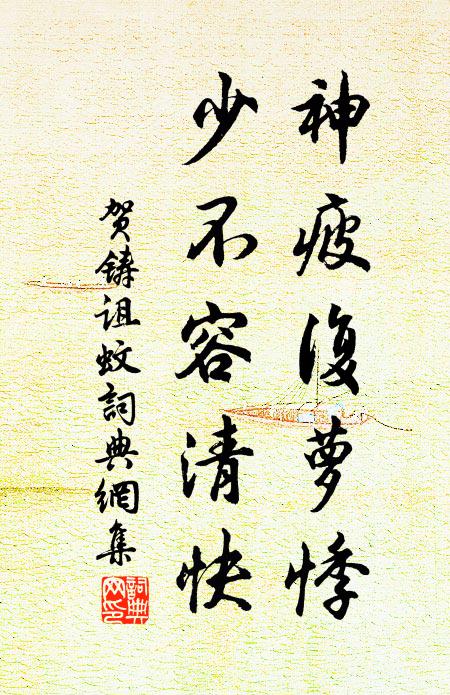 神疲復夢悸
少不容清快
贺鑄詛蚊詞典網集
詞典
网印